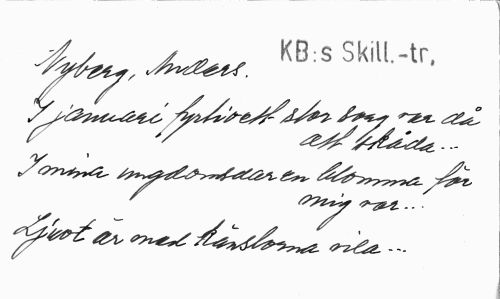 Nyberg, Anders.
KB:s Skill.-tr.
I januari fyrtioett stor sorg var då
att skåda...
I mina ungdomsdar en blomma för
mig var...
Ljuvt är med känslorna vila...